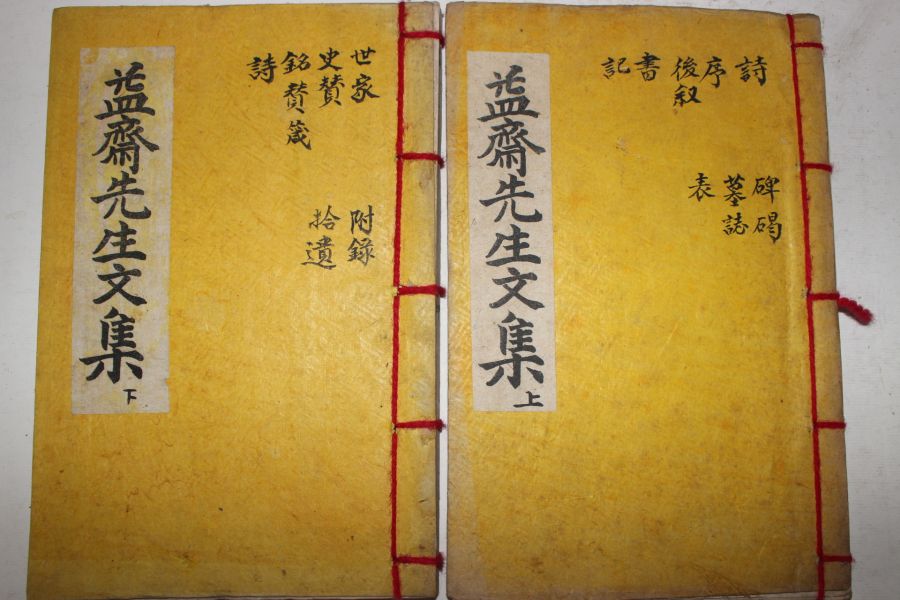 詩
序
後叙
書
記
碑碣
墓誌
表
益齋先生文集
上
世家
史賛
銘賛箴
詩
附錄
拾遺
益齋先生文集
下